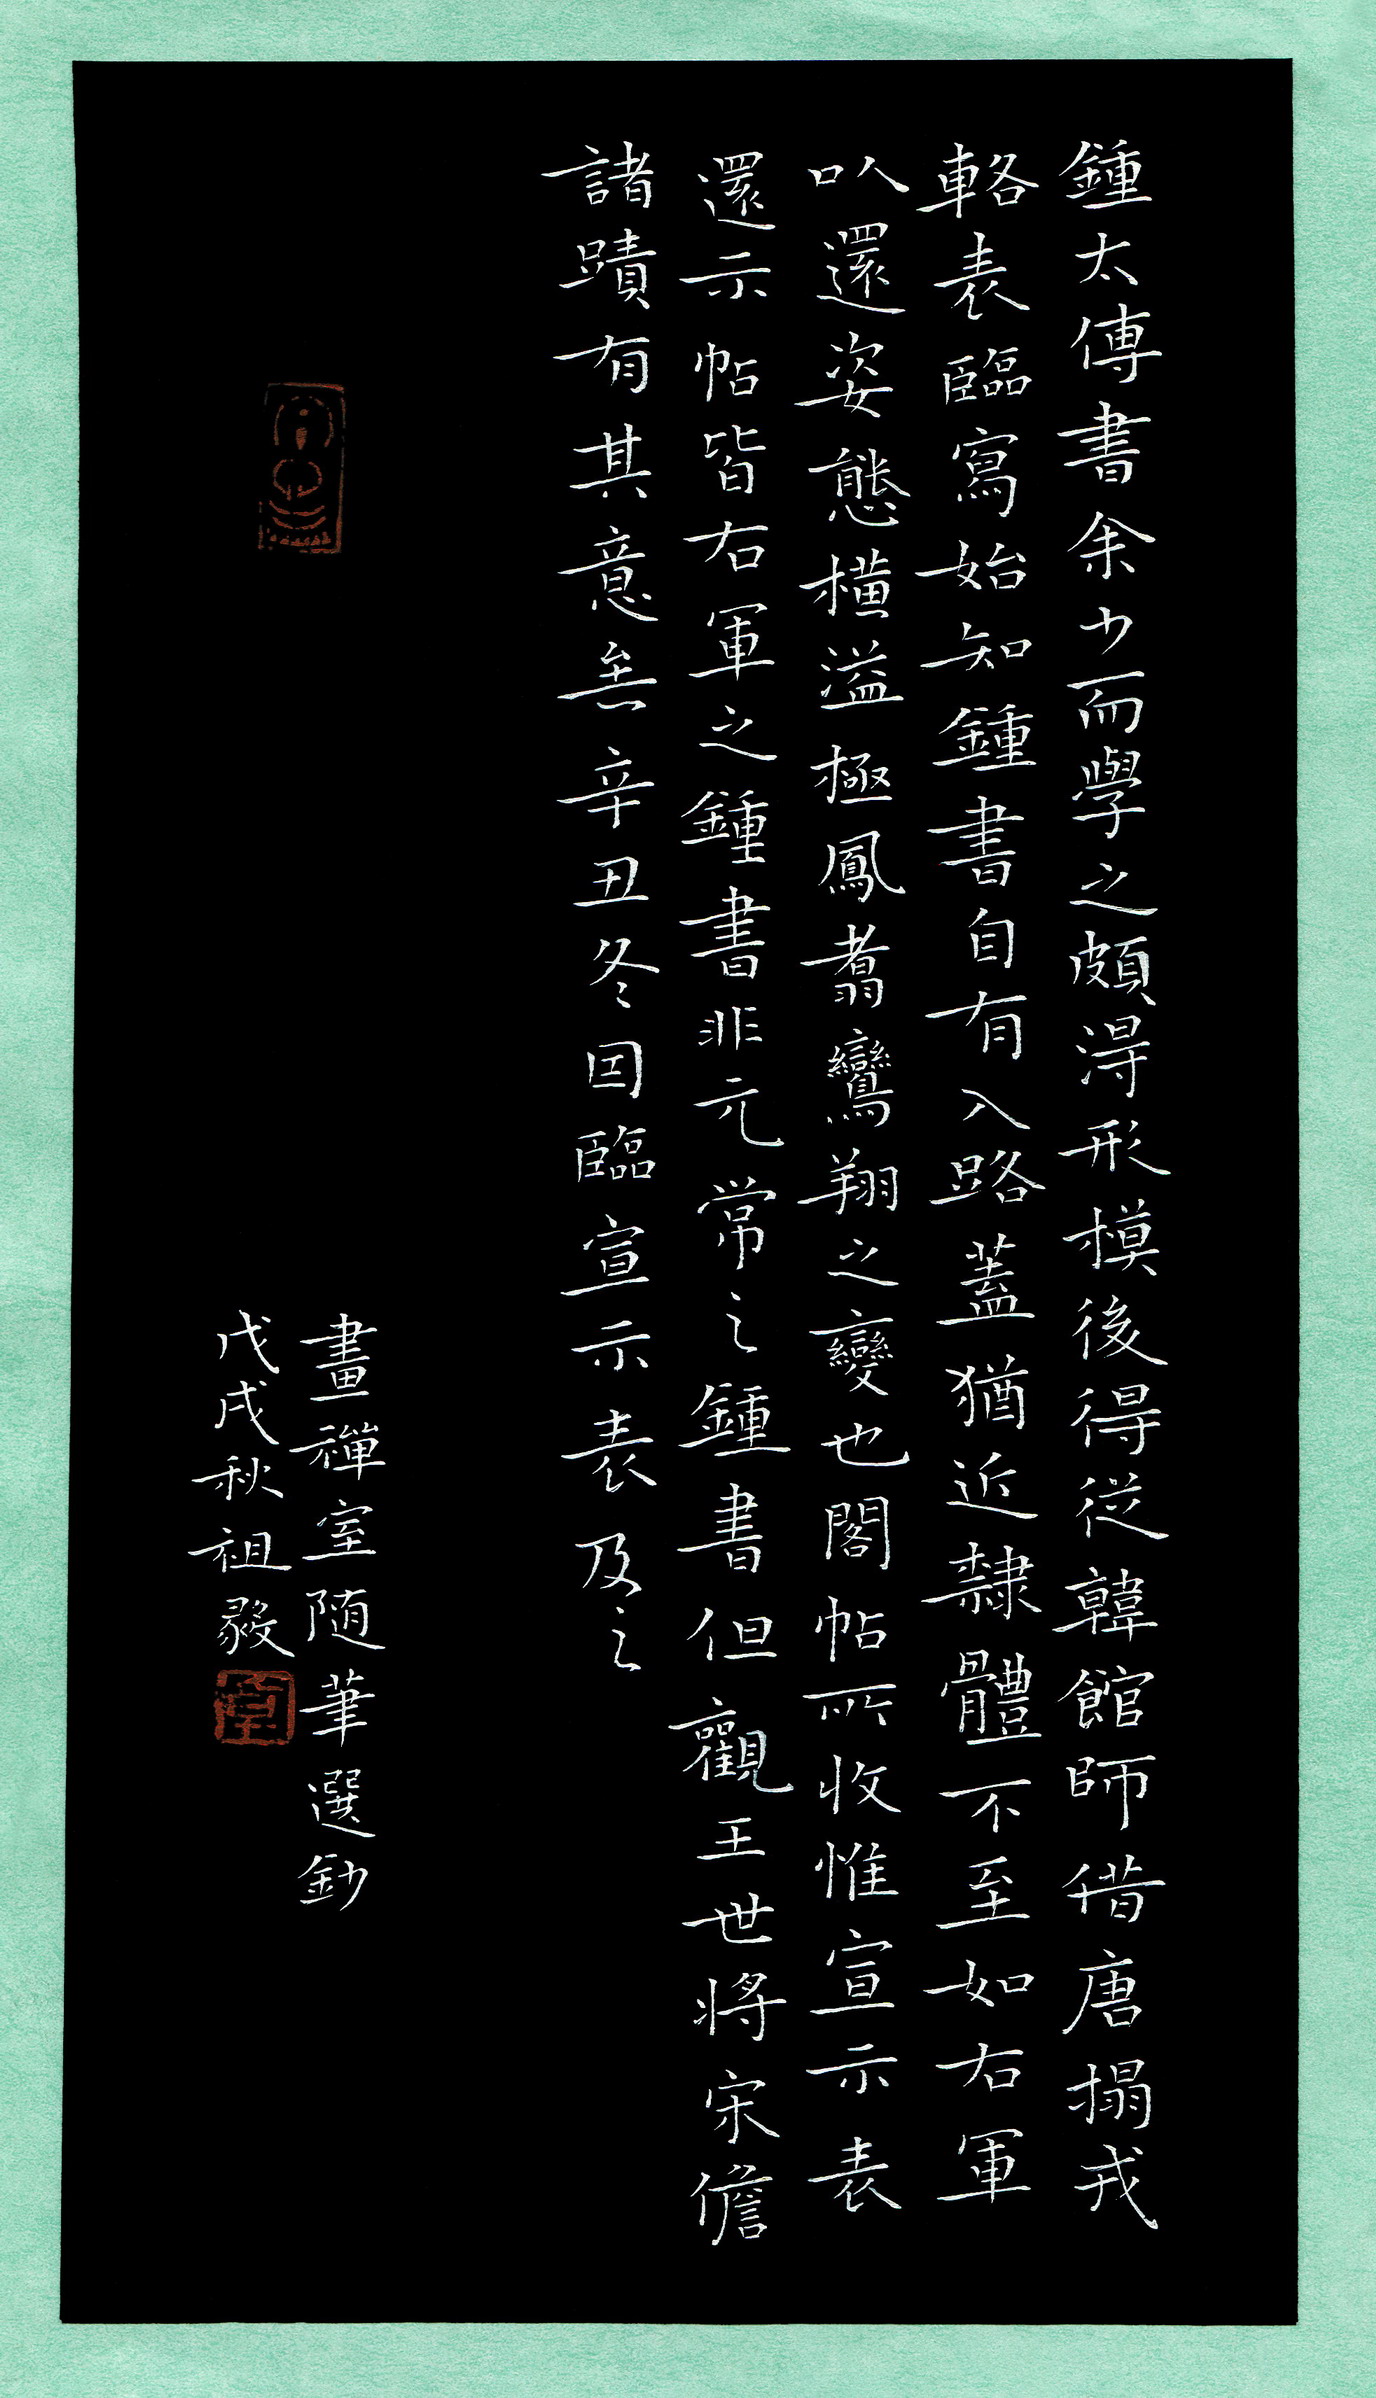 鍾太傅書余少而學之頗淂形模後得從韓館師借唐搨戎
輅表臨寫始知鍾書自有入路蓋猶近隸體不至如右軍
㕥還姿態横溢極鳳翥鸞翔之變也閣帖所收惟宣示表
還示帖皆右軍之鍾書非元常之鍾書但觀王世將宋儋
諸蹟有其意矣辛丑冬因臨宣示表及之
畫禪室随筆選鈔
戊戌秋祖毅